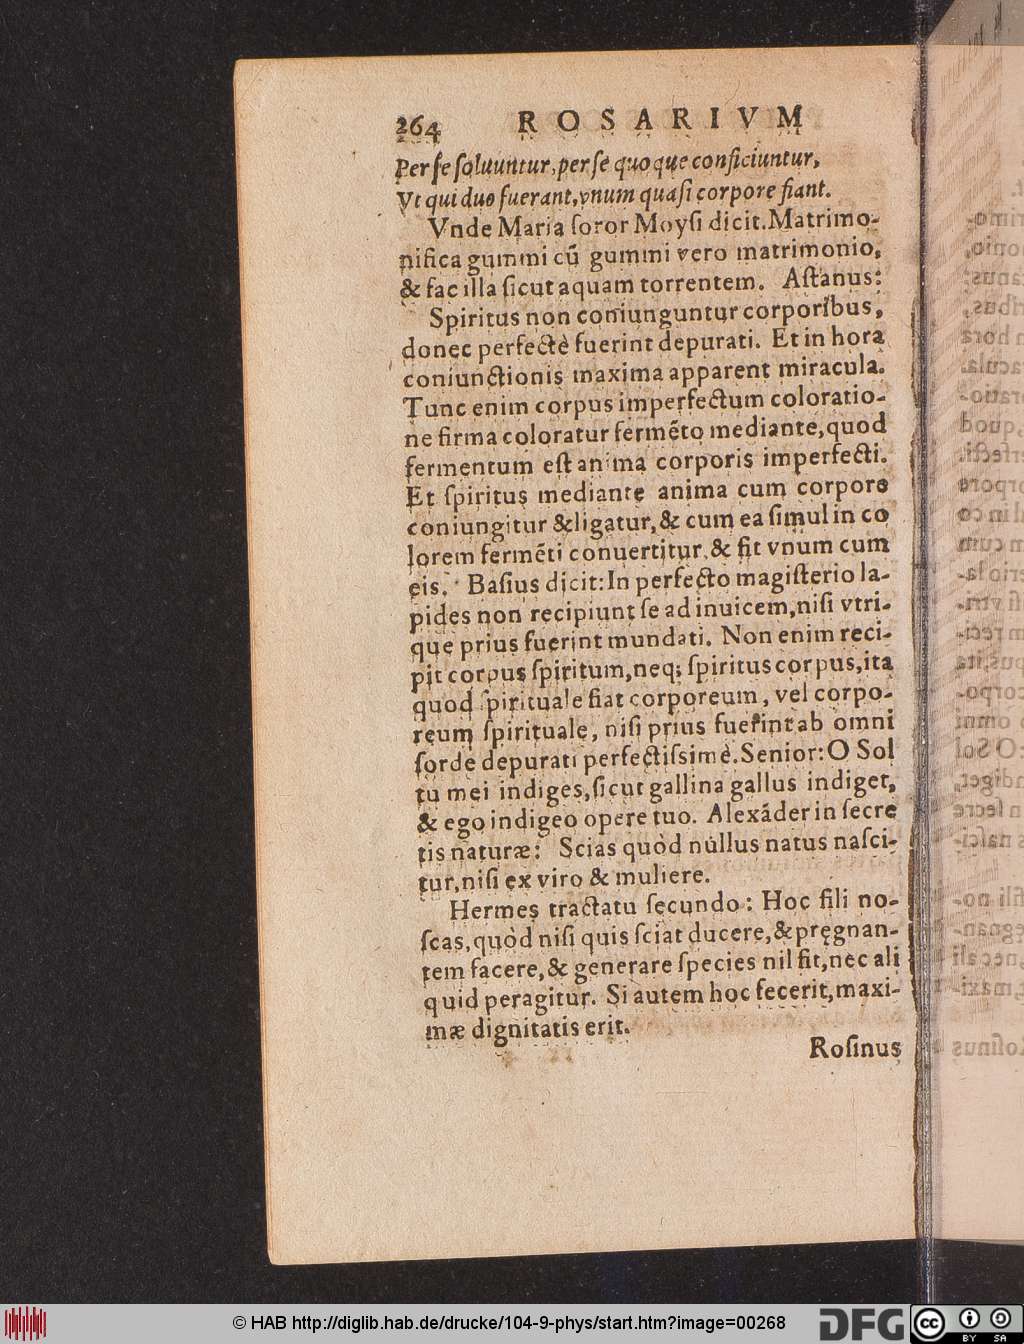 264 ROSARIVM
Per ſe ſoluuntur, per ſe quoque conficiuntur,
Vt qui duo fuerant, vnum quaſi corpore fiant.
Vnde Maria ſoror Moyſi dicit. Matrimo-
nifica gummi cũ gummi vero matrimonio,
& fac illa ſicut aquam torrentem. Aſtanus:
Spiritus non coniunguntur corporibus,
donec perfectè fuerint depurati. Et in hora
coniunctionis maxima apparent miracula.
Tunc enim corpus imperfectum coloratio-
ne firma coloratur fermẽto mediante, quod
fermentum eſt anima corporis imperfecti.
Et ſpiritus mediante anima cum corpore
coniungitur & ligatur, & cum ea ſimul in co
lorem fermẽti conuertitur, & fit vnum cum
eis. Baſius dicit: In perfecto magiſterio la-
pides non recipiunt ſe ad inuicem, niſi vtri-
que prius fuerint mundati. Non enim reci-
pit corpus ſpiritum, neq; ſpiritus corpus, ita
quod ſpirituale fiat corporeum, vel corpo-
reum ſpirituale, niſi prius fuerint ab omni
ſorde depurati perfectiſsimè. Senior: O Sol
tu mei indiges, ſicut gallina gallus indiget,
& ego indigeo opere tuo. Alexãder in ſecre
tis naturæ: Scias quòd nullus natus naſci-
tur, niſi ex viro & muliere.
Hermes tractatu ſecundo: Hoc fili no-
ſcas, quòd niſi quis ſciat ducere, & pręgnan-
tem facere, & generare ſpecies nil fit, nec ali
quid peragitur. Si autem hoc fecerit, maxi-
mæ dignitatis erit.
Roſinus
© HAB http://diglib.hab.de/drucke/104-9-phys/start.htm?image=00268
DFG
cc BY SA